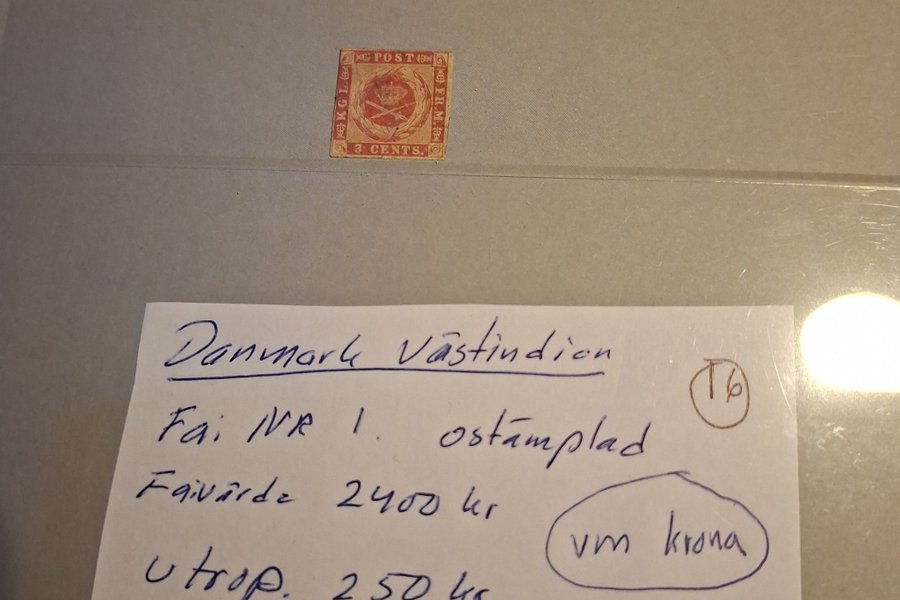 POST
K G L.
F R. M.
3 CENTS.
Danmark Västindien
T6
Fai NR 1. ostämplad
Faivärde 2400 kr
vm krona
utrop. 250 kr